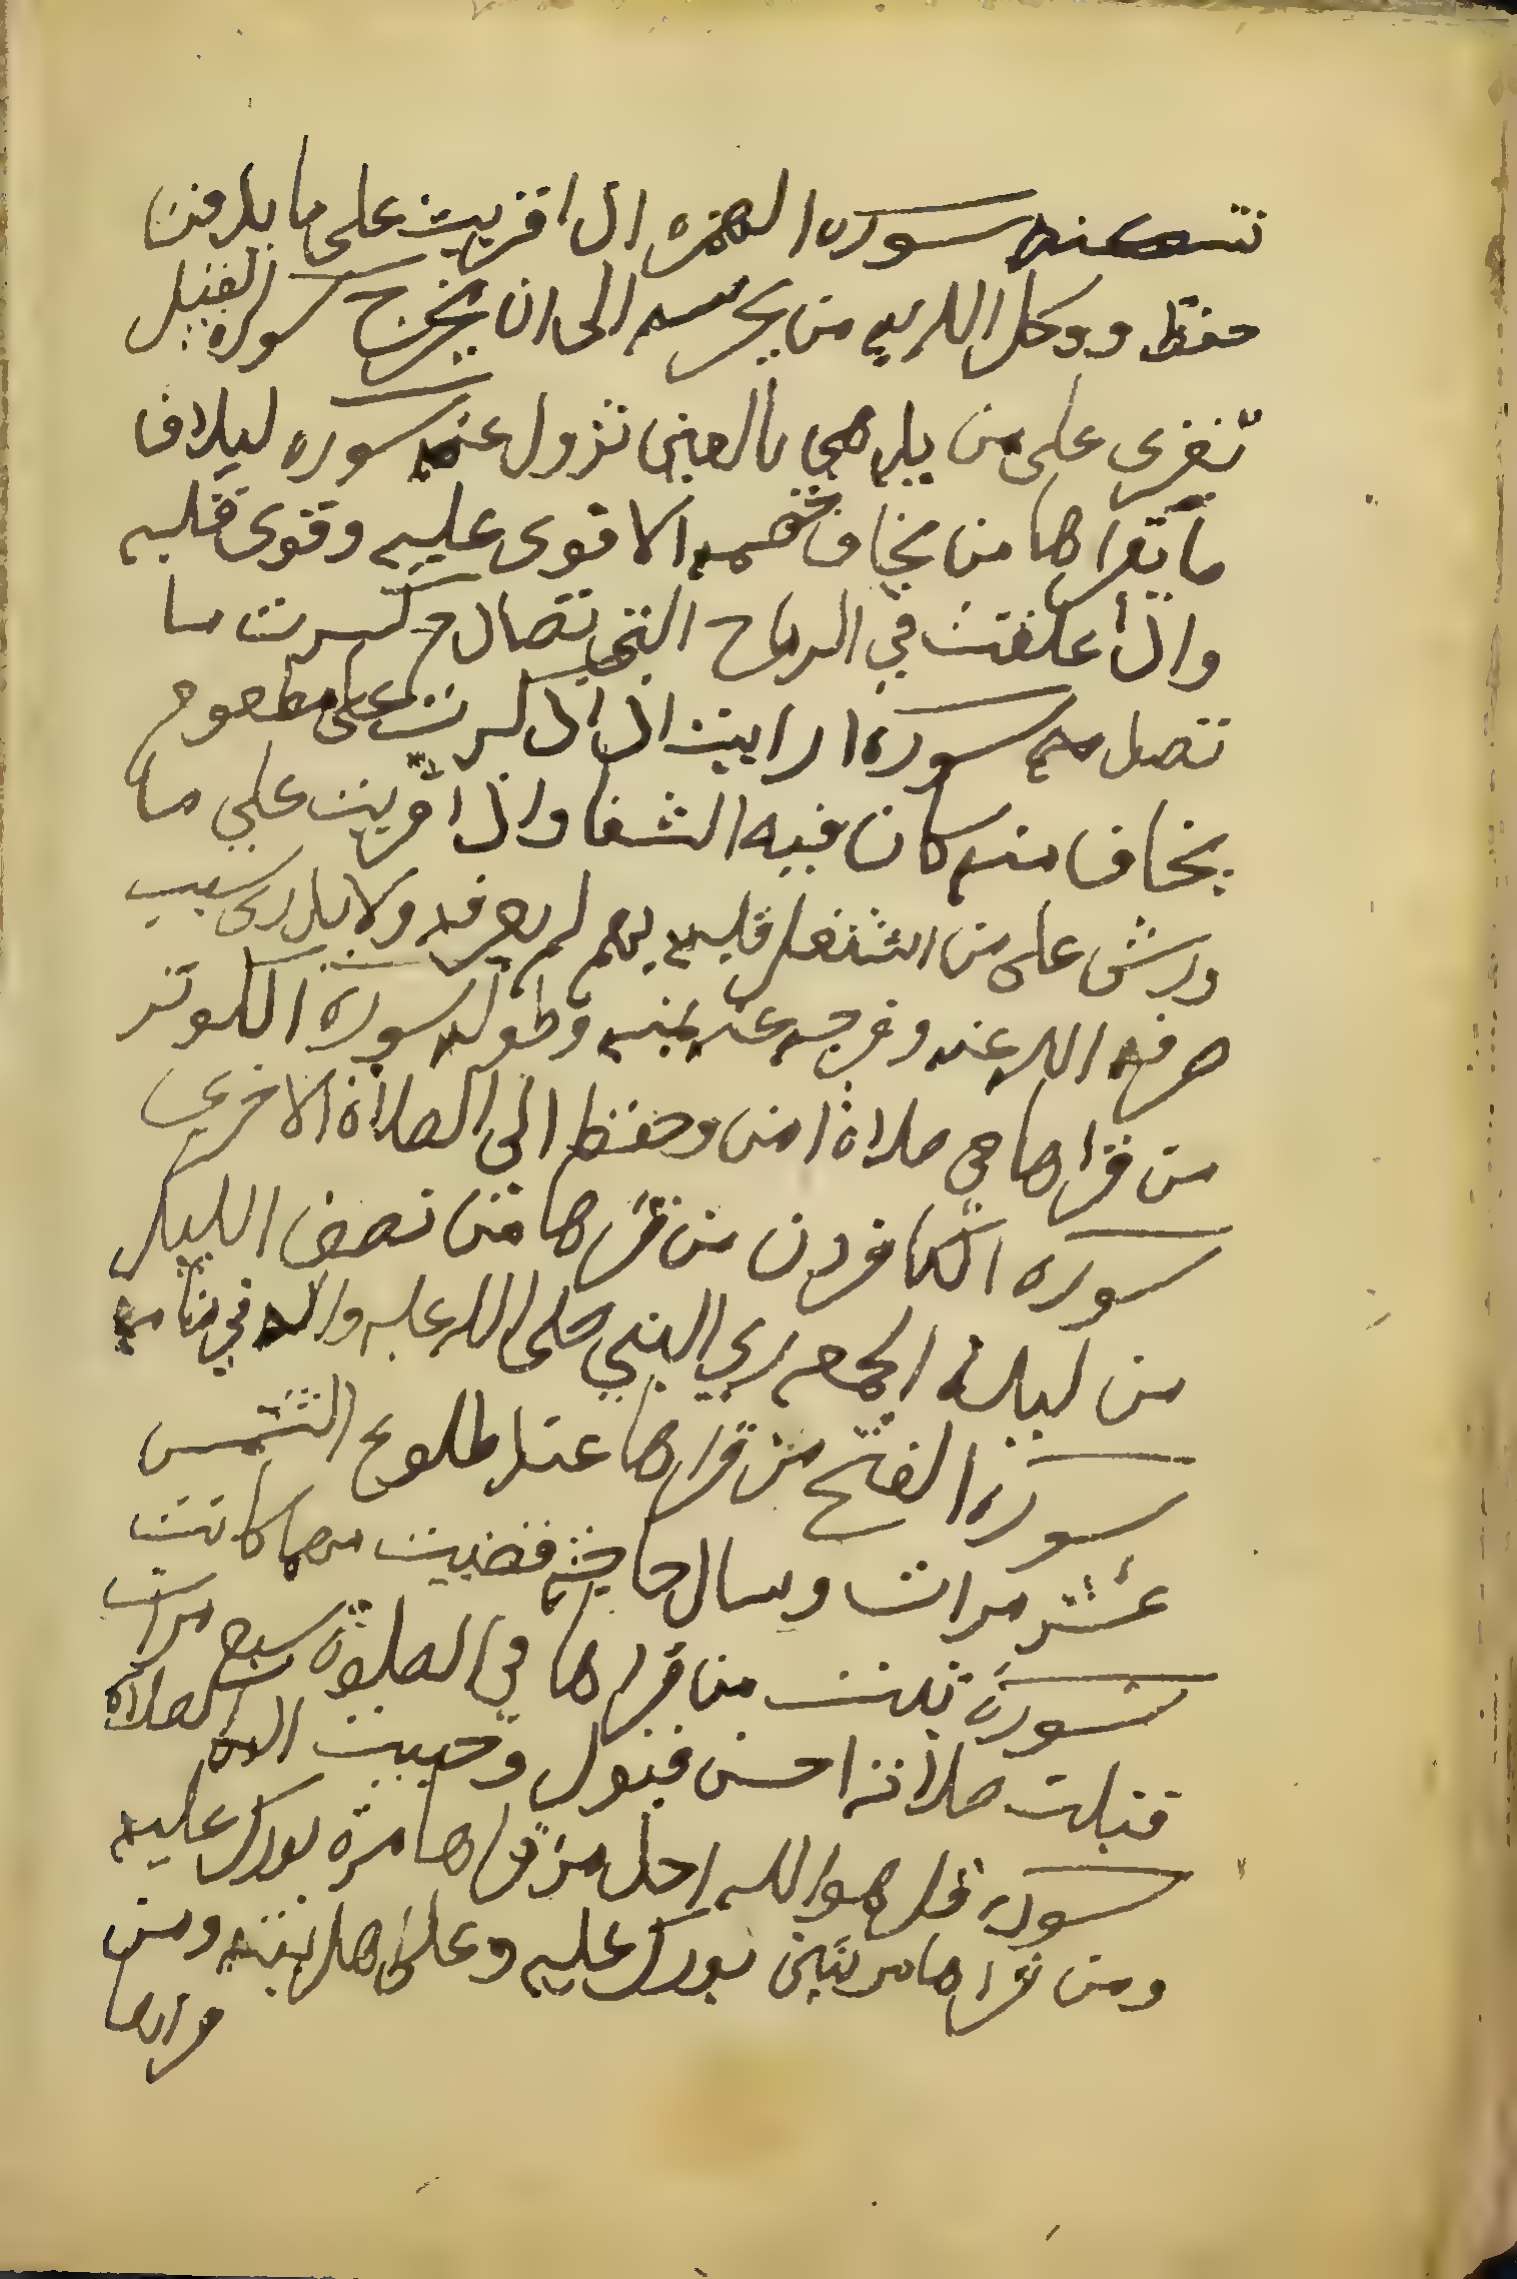 سورة الهمزه اذا قريت على ما يدفن
حفظ ووكل الله به من يحرسه الى ان يخرج سورة الفيل
تغرى على من بالعين تزول عنه سوره ليلاف
ما تقراها من يخاف خصمه الا قوى عليه وقوى قلبه
واذا علقت في الرماح التي تصادم كسرت ما
تصل سورة ارايت اذا كريت على مطعوم
يخاف منه كان فيه الشفا واذا قريت علي ما
ورش على من اشتغل قلبه بهم لم يعرفه ولا يدرى سببه
صرفه الله عنه وفرجه عنه بمنه وطوله سورة الكوثر
من قراها في صلاة امن وحفظ الى الصلاة الاخرى
سورة الكافرون من قراها من نصف الليل
من ليلة الجمعه ري النبي صلى الله عليه واله في منامه
سورة الفتح من قراها عند طلوع الشمس
عشر مرات وسال حاجته قضيت مهما كانت
سورة تبت من قراها في الصلوة سبع مرات
قبلت صلاته احسن قبول وحببت اليه الصلاة
سورة قل هو الله احد من قراها مرة بورك عليه
ومن قراها مرتين بورك عليه وعلى اهل بيته ومن
قراها